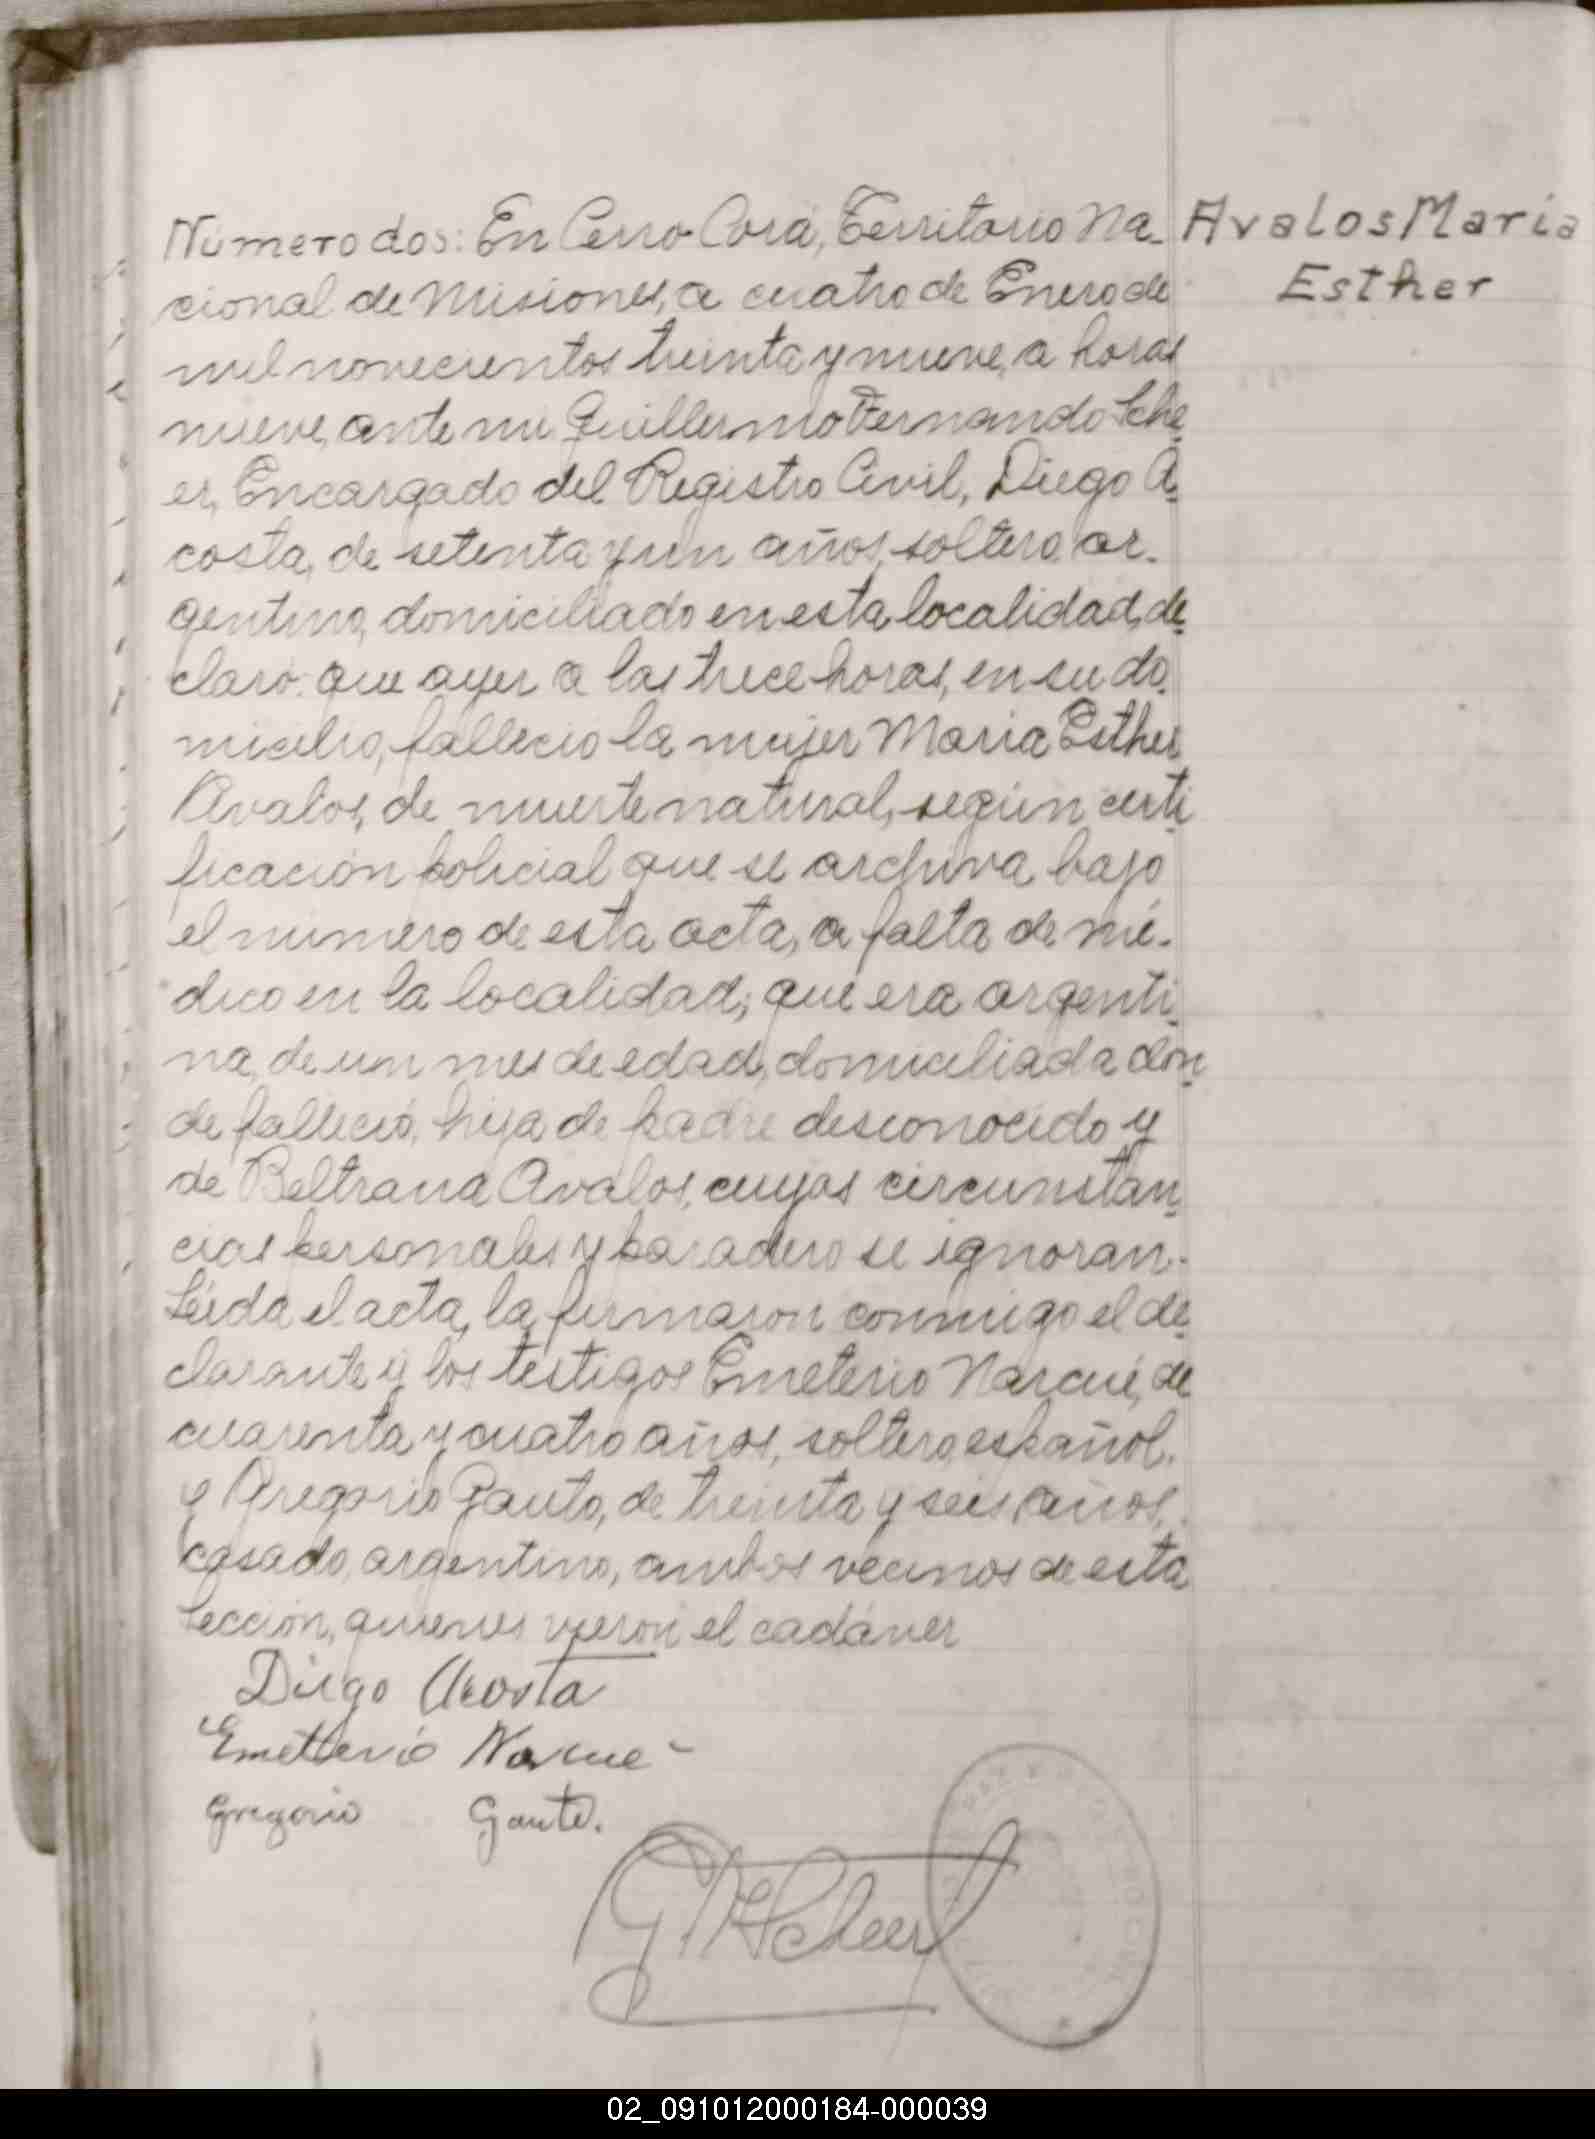 Número dos: En Cerro Corá, Territorio Na-
cional de Misiones, a cuatro de Enero de
mil novecientos treinta y nueve, a horas
nueve, ante mi Guillermo Fernando Sche-
er, Encargado del Registro Civil, Diego A-
costa, de setenta y un años, soltero, ar-
gentino, domiciliado en esta localidad, de-
claró: que ayer a las trece horas, en su do-
micilio, falleció la mujer Maria Esther
Avalos, de muerte natural, según certi-
ficación policial que se archiva bajo
el número de esta acta, a falta de mé-
dico en la localidad; que era argenti-
na, de un mes de edad, domiciliada don-
de falleció, hija de padre desconocido y
de Beltrana Avalos, cuyas circunstan-
cias personales y paradero se ignoran.
Leída el acta, la firmaron conmigo el de-
clarante y los testigos Emeterio Narcué, de
cuarenta y cuatro años, soltero, español.
y Gregorio Gauto, de treinta y seis años,
casado, argentino, ambos vecinos de esta
Sección, quienes vieron el cadáver
Diego Acosta
Emetterio Narcue-
Gregorio Gauto.
G F Scheer
Avalos Maria
Esther
02_091012000184-000039